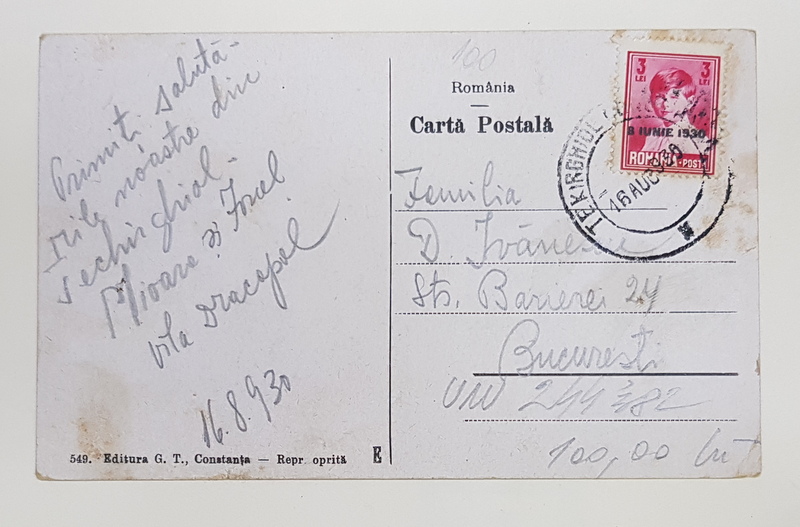 Primiti salută-
rile noastre din
Techirghiol.
Mioara și Jonel
Vila Dracopol
16.8.930
549. Editura G. T., Constanța — Repr. oprită E
100
România
Cartă Postală
3 LEI 3 LEI
8 IUNIE 1930
ROMÂNIA-POSTA
TEKIRGHIOL
16 AUG 930
Familia
D. Ivănescu
Str. Barierei 24
București
244 782
100,00